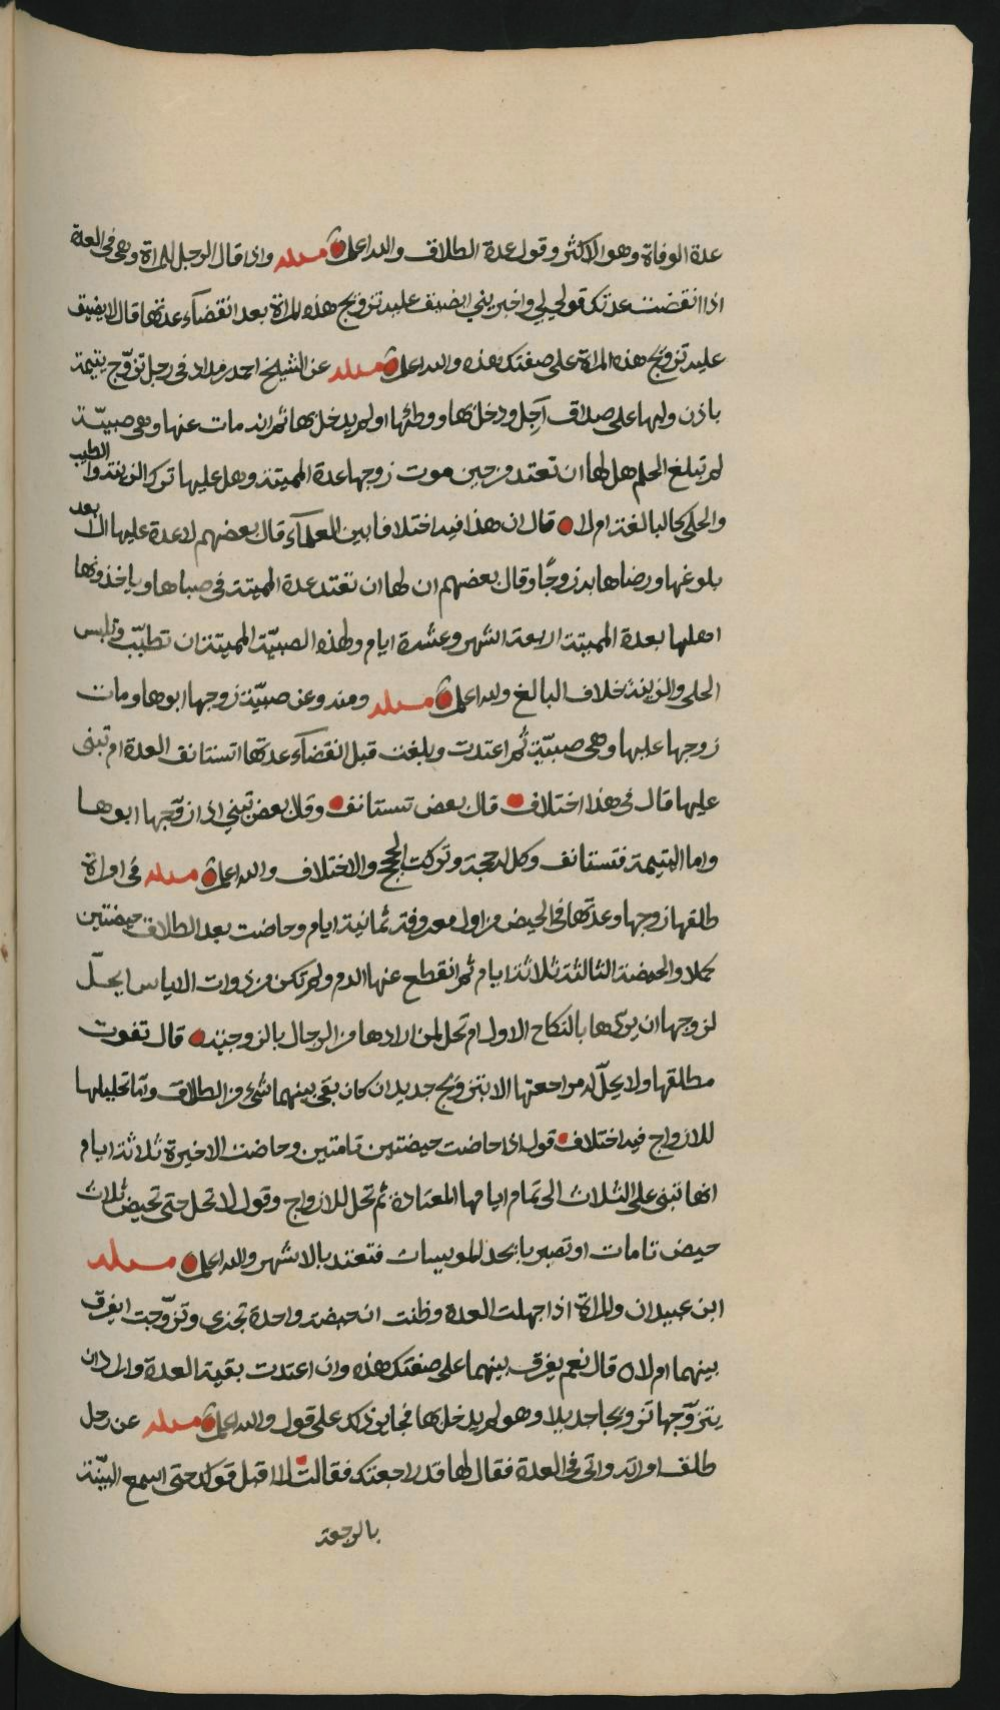 عدة الوفاة وهو الاكثر وقول عدة الطلاق والله اعلم مسئلة واذا قال الرجل للمراة وهي في العدة
اذا انقضت عدتك قولي لي واخبريني ايضيق عليه تزويج هذه المراة بعد انقضاء عدتها قال لا يضيق
عليه تزويج هذه المراة على صفتك هذه والله اعلم مسئلة عن الشيخ احمد بن مداد في رجل تزوج يتيمة
باذن وليها على صداق آجل ودخل بها ووطئها او لم يدخل بها ثم انه مات عنها وهي صبيّة
لم تبلغ الحلم هل لها ان تعتد من حين موت زوجها عدة المميتة وهل عليها ترك الزينة والطيب
والحلي كالبالغة ام لا قال ان هذا فيه اختلافا بين العلماء قال بعضهم لا عدة عليها الا بعد
بلوغها ورضاها به زوجًا وقال بعضهم ان لها ان تعتد عدة المميتة في صباها وياخذونها
اهلها بعدة المميتة اربعة اشهر وعشرة ايام ولهذه الصبيّة المميتة ان تطيّب وتلبس
الحلي والزينة خلاف البالغ والله اعلم مسئلة ومنه وعن صبيّة زوجها ابوها ومات
زوجها عليها وهي صبيّة ثم اعتدت وبلغت قبل انقضاء عدتها اتستانف العدة ام تبني
عليها قال في هذا اختلاف قال بعض تستانف وقال بعض تبني اذا زوّجها ابوها
واما اليتيمة فتستانف وكل له حجة وتركت الحجج والاختلاف والله اعلم مسئلة في امراة
طلقها زوجها وعدتها في الحيض من اول معروفة ثمانية ايام وحاضت بعد الطلاق حيضتين
كملا والحيضة الثالثة ثلاثة ايام ثم انقطع عنها الدم ولم تكن من ذوات الاياس ايحلّ
لزوجها ان يردها بالنكاح الاول ام تحل لمن ارادها من الرجال بالزوجية قال تفوت
مطلقها ولا يحلّ له مراجعتها الا بتزويج جديد ان كان بقي بينهما شيء من الطلاق واما تحليلها
للازواج فيه اختلاف قول اذا حاضت حيضتين تامتين وحاضت الاخيرة ثلاثة ايام
انها تبني على الثلاث الى تمام ايامها المعتادة ثم تحل للازواج وقول لا تحل حتى تحيض ثلاث
حيض تامات او تصير بحد المويسات فتعتد بالاشهر والله اعلم مسئلة
ابن عبيدان والمراة اذا جهلت العدة وظنت ان حيضة واحدة تجزي وتزوّجت ايفرق
بينهما ام لا قال نعم يفرق بينهما على صفتك هذه وان اعتدت بقية العدة واراد ان
يتزوّجها تزويجا جديدا وهو لم يدخل بها فجايز ذلك على قول والله اعلم مسئلة عن رجل
طلق امراته واتى في العدة فقال لها قد راجعتك فقالت لا اقبل قولك حتى اسمع البيّنة
بالرجعة